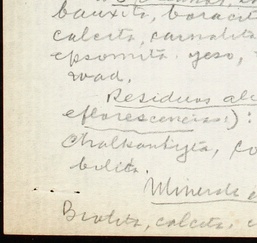 bauxita, boracit
calcita, carnalita
epsomita, yeso,
wad.
Residuos al
eflorescencias):
Chalkantyta, co
bolita.
Minerals
Biotita, calcita,